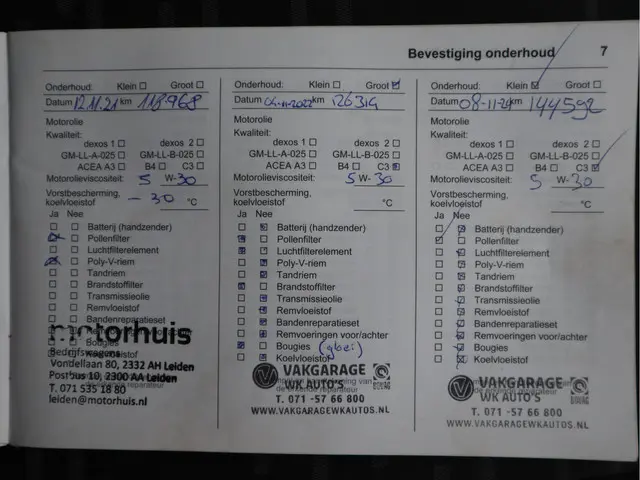 Bevestiging onderhoud 7
Onderhoud: Klein Groot
Datum 12.11.21 km 118.968
Motorolie
Kwaliteit:
dexos 1 dexos 2
GM-LL-A-025 GM-LL-B-025
ACEA A3 B4 C3
Motorolieviscositeit: 5 W-30
Vorstbescherming,
koelvloeistof - 30 °C
Ja Nee
Batterij (handzender)
Pollenfilter
Luchtfilterelement
Poly-V-riem
Tandriem
Brandstoffilter
Transmissieolie
Remvloeistof
Bandenreparatieset
motorhuis
Bougies
Bedrijfswagens
Vondellaan 80, 2332 AH Leiden
Postbus 10, 2300 AA Leiden
T. 071 535 18 80
leiden@motorhuis.nl
Onderhoud: Klein Groot
Datum km 126314
Motorolie
Kwaliteit:
dexos 1 dexos 2
GM-LL-A-025 GM-LL-B-025
ACEA A3 B4 C3
Motorolieviscositeit: 5 W-30
Vorstbescherming,
koelvloeistof °C
Ja Nee
Batterij (handzender)
Pollenfilter
Luchtfilterelement
Poly-V-riem
Tandriem
Brandstoffilter
Transmissieolie
Remvloeistof
Bandenreparatieset
Remvoeringen voor/achter
Bougies
Koelvloeistof
VAKGARAGE
WK AUTO'S
BOVAG
T. 071 -57 66 800
WWW.VAKGARAGEWKAUTOS.NL
Onderhoud: Klein Groot
Datum 08-11-24 km 144592
Motorolie
Kwaliteit:
dexos 1 dexos 2
GM-LL-A-025 GM-LL-B-025
ACEA A3 B4 C3
Motorolieviscositeit: 5 W-30
Vorstbescherming,
koelvloeistof °C
Ja Nee
Batterij (handzender)
Pollenfilter
Luchtfilterelement
Poly-V-riem
Tandriem
Brandstoffilter
Transmissieolie
Remvloeistof
Bandenreparatieset
Remvoeringen voor/achter
Bougies
Koelvloeistof
VAKGARAGE
WK AUTO'S
BOVAG
T. 071 -57 66 800
WWW.VAKGARAGEWKAUTOS.NL